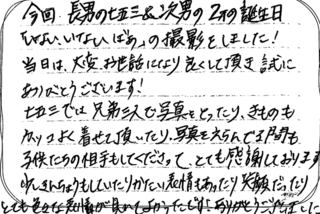 今回長男の七五三&次男の2才の誕生日
いない、いない、ばぁの撮影をしました!
当日は、大変お世話になり良くして頂き誠に
ありがとうございます!
七五三では兄弟三人で写真をとったり、きものも
カッコよく着せて頂いたり、写真をえらんでる間も
子供たちの相手もしてくださって、とても感謝しております
きんちょうもしていたりかたい表情もあったり大変だったり
とても色々な表情が見れてよかったです!ありがとうございました